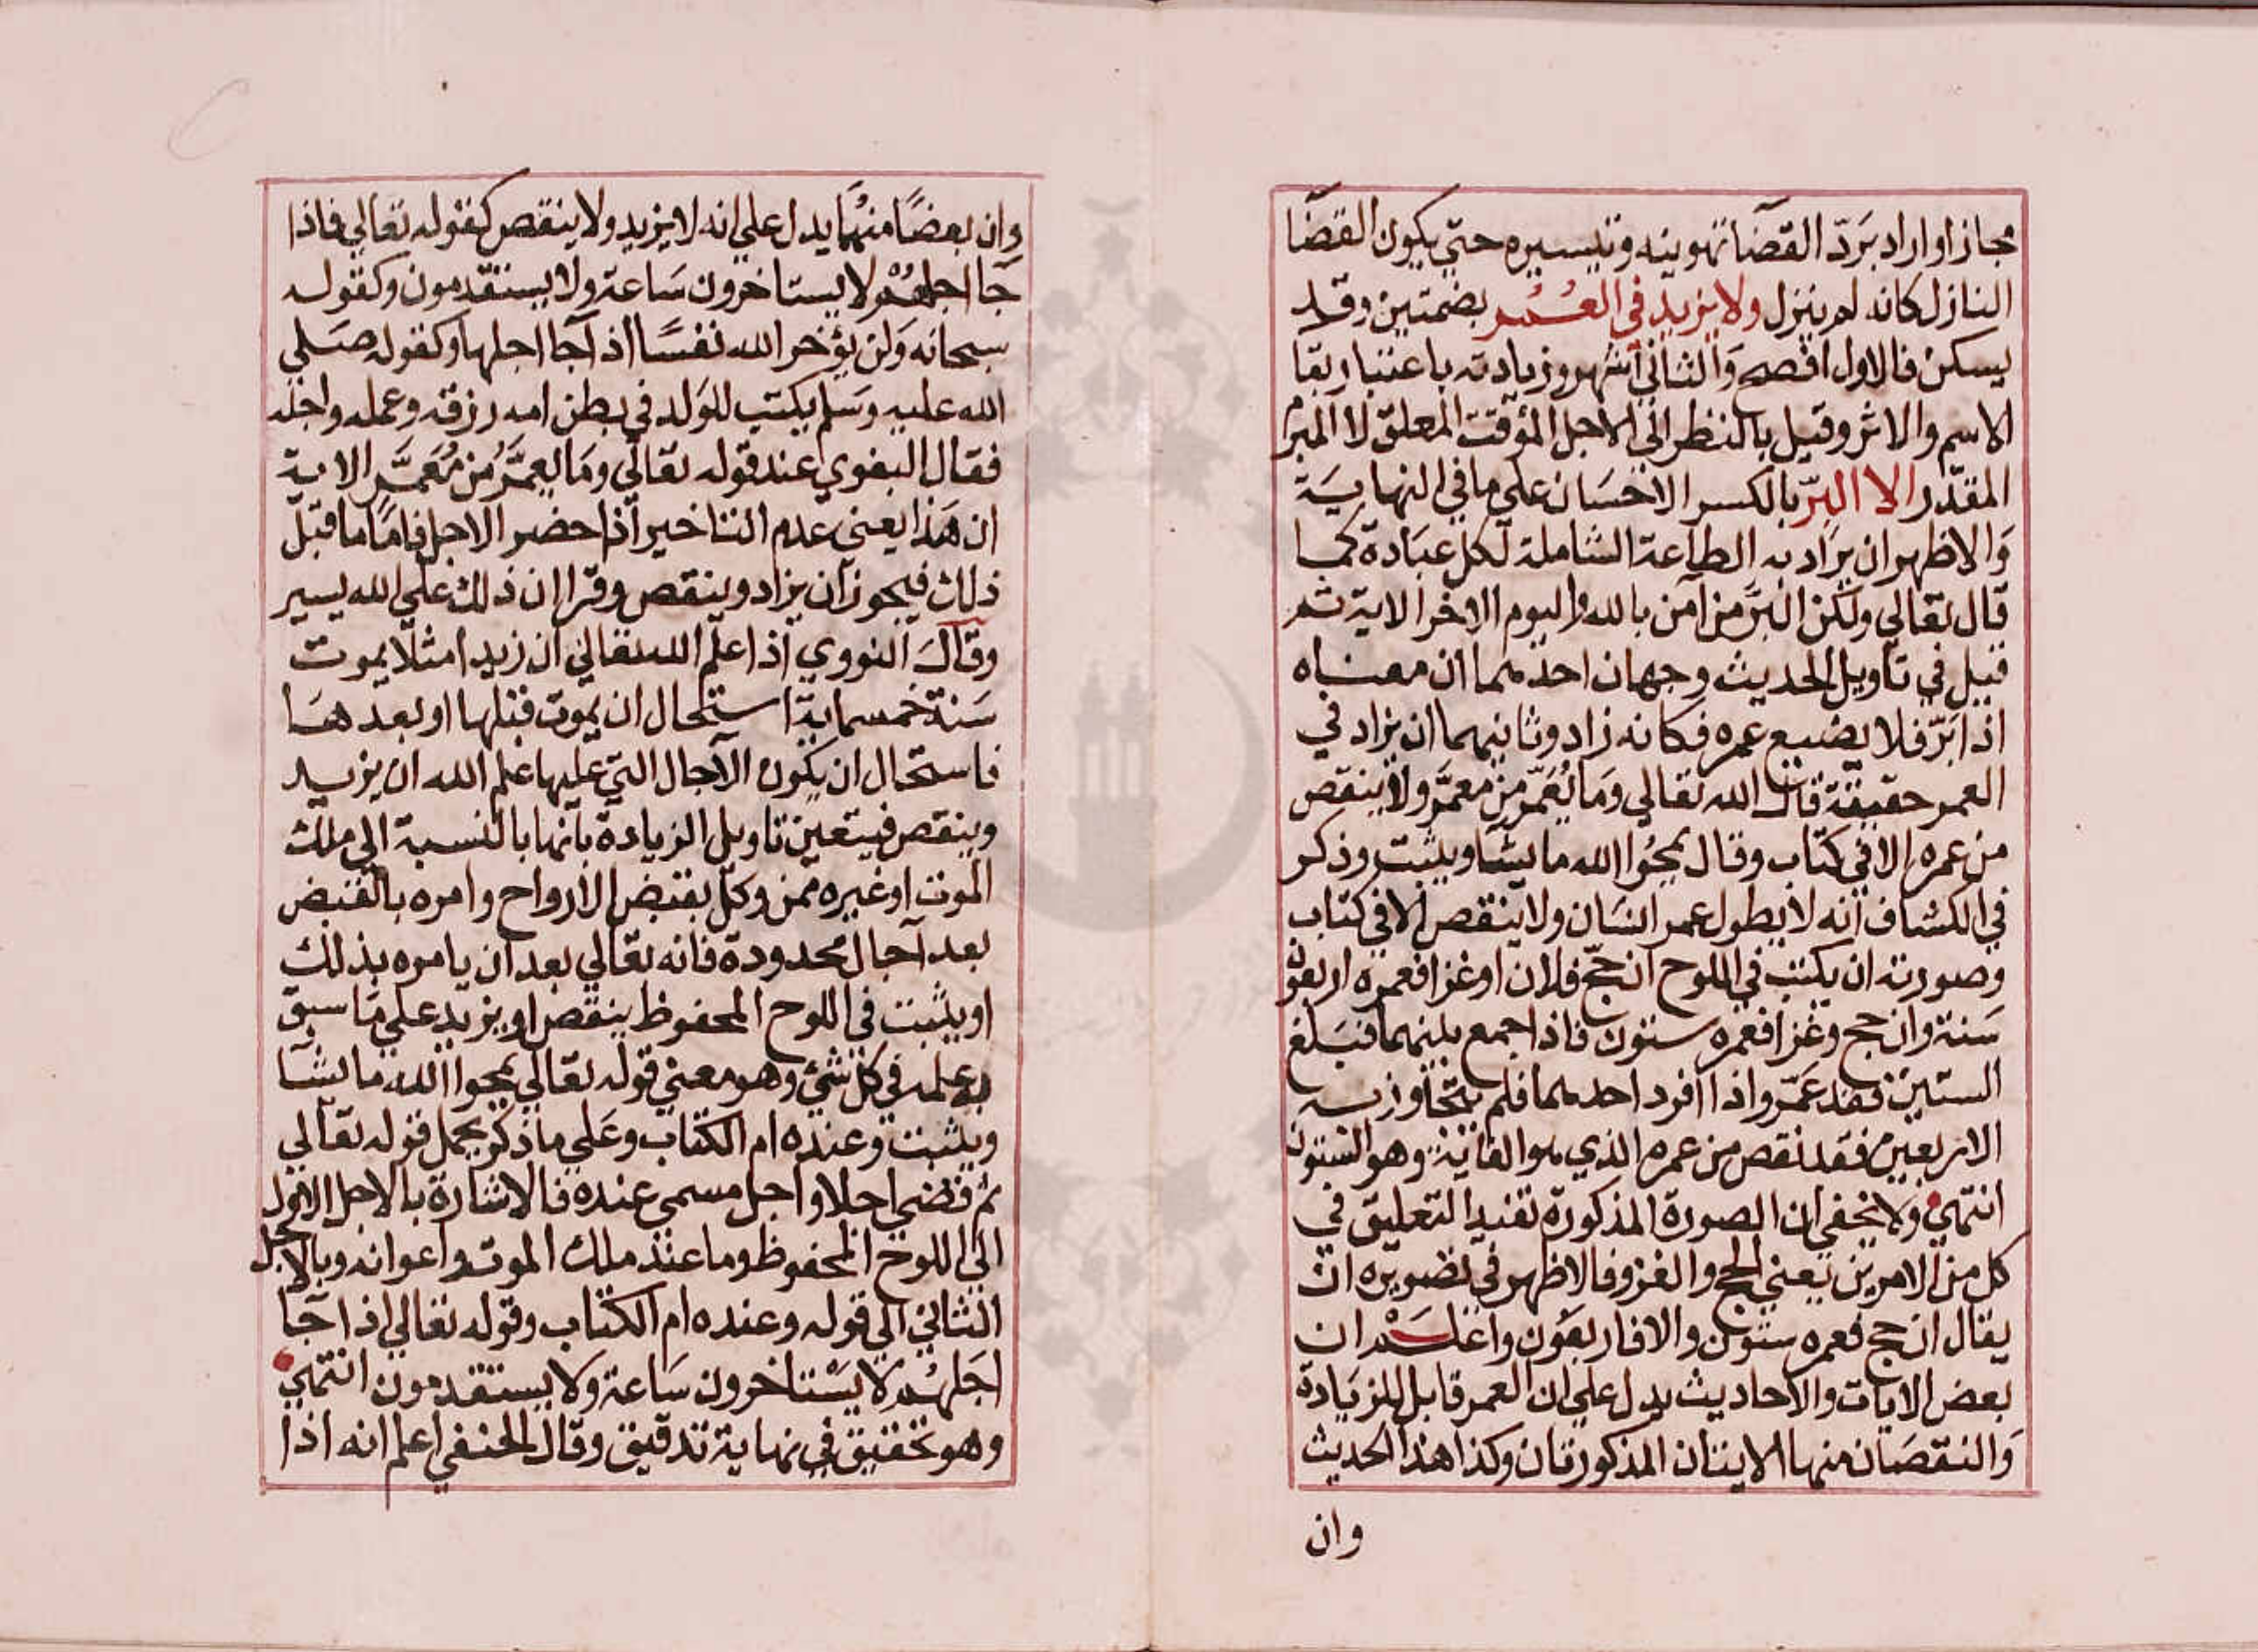 مجازا او اراد بَردّ القضآ تهوينه وتيسيره حتي يكون القضآ
النازل كانه لم ينزل ولا يزيد في العُمُر بضمتين وقد
يسكن فالاول افصح وَالثاني اشهر وزيادته باعتبار بقا
الاسم والاثر وقيل بالنظر الي الاجل المؤقت المعلق لا المبرم
المقدّر الا البِرّ بالكسر الاحسَان علي ما في النهايَة
وَالاظهر ان يرَاد به الطاعة الشاملة لكل عبَادة كما
قال تعالي ولكن البرّ من آمن بالله واليوم الاخر الاية ثم
قيل في تاويل الحديث وجهان احدهما ان معناه
اذا بَرّ فلا يضيع عمره فكانه زاد وثانيهما ان يزاد في
العمر حقيقة قال الله تعالي وَما يُعَمّر من معمَّر ولا ينقص
من عمره الا في كتاب وقال يمحُوا الله ما يشا ويثبت وذكر
في الكشاف انه لا يطول عمر انسَان ولا ينقص الا في كتاب
وصورته ان يكتب في اللوح ان حجّ فلان او غزا فعمره اربعون
سَنة وان حج وغزا فعمره ستون فاذا جمع بينهما فبَلغ
الستين فقد عمّر واذا افرد احدهما فلم يتجاوز به
الاربعين فقد نقص من عمره الذي هو الغاية وهو الستون
انتهي ولا يخفي ان الصورة المذكورة تفيد التعليق في
كل من الامرين يعني الحج والغزو فالاظهر في تصويره ان
يقال ان حج فعمره ستون والا فاربعون واعلَم ان
بعض الايات والاحاديث يدل علي ان العمر قابل للزيَادة
وَالنقصَان منها الايتان المذكورتان وكذا هذا الحديث
وان
وان بعضًا منهَما يدل علي انه لا يزيد ولا ينقص كقوله تعالي فاذا
جَا اجلهُم لا يستاخرون سَاعة ولا يستقدمون وكقوله
سبحانه وَلن يؤخر الله نفسًا اذا جا اجلها وكقوله صَلي
الله عليه وسَلم يكتب للوَلد في بطن امه رزقه وعمله واجله
فقال البغوي عند قوله تعالي ومَا يعمَّرُ من مُعَمَّر الاية
ان هَذا يعني عدم التاخير اذا حضر الاجل فامّا ما قبل
ذلك فيجوز ان يزاد وينقص وقرا ان ذلك علي الله يسير
وقالَ النووي اذا علم الله تعالي ان زيدا مثلا يموت
سَنة خمسماية استحال ان يموت قبلها او بعدهَا
فاستحال ان يكون الآجال التي عليها علم الله ان يزيد
وينقص فيتعين تاويل الزيادة بانها بالنسبة الي ملك
الموت او غيره ممن وكل بقبض الارواح وامره بالقبض
بعد آجال محدودة فانه تعالي بعد ان يامره بذلك
او يثبت في اللوح المحفوظ ينقص او يزيد علي مَا سبق
به علمه في كل شيئ وهو معني قوله تعالي يمحوا الله ما يشآ
ويثبت وعنده ام الكتاب وعَلي ما ذكر يحمل قوله تعالي
ثم قضي اجلا واجل مسمي عنده فالاشارة بالاجل الاول
الي اللوح المحفوظ وما عند ملك الموت واعوانه وبالاجل
الثاني الي قوله وعنده ام الكتاب وقوله تعالي اذا جَا
اجَلهُم لا يسْتاخرون سَاعة ولا يستقدمون انتهي
وهو تحقيق في نهاية تدقيق وقال الحنفي اعلم انه اذا